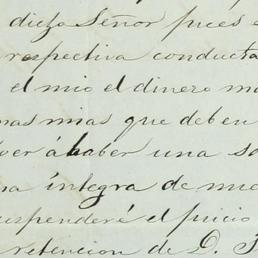 dicho Señor pues e
respectiva conducta
el mio el dinero ma
mas mias que deben
ver á haber una so
na íntegra de mue
suspenderé el juicio
retencion de D. J